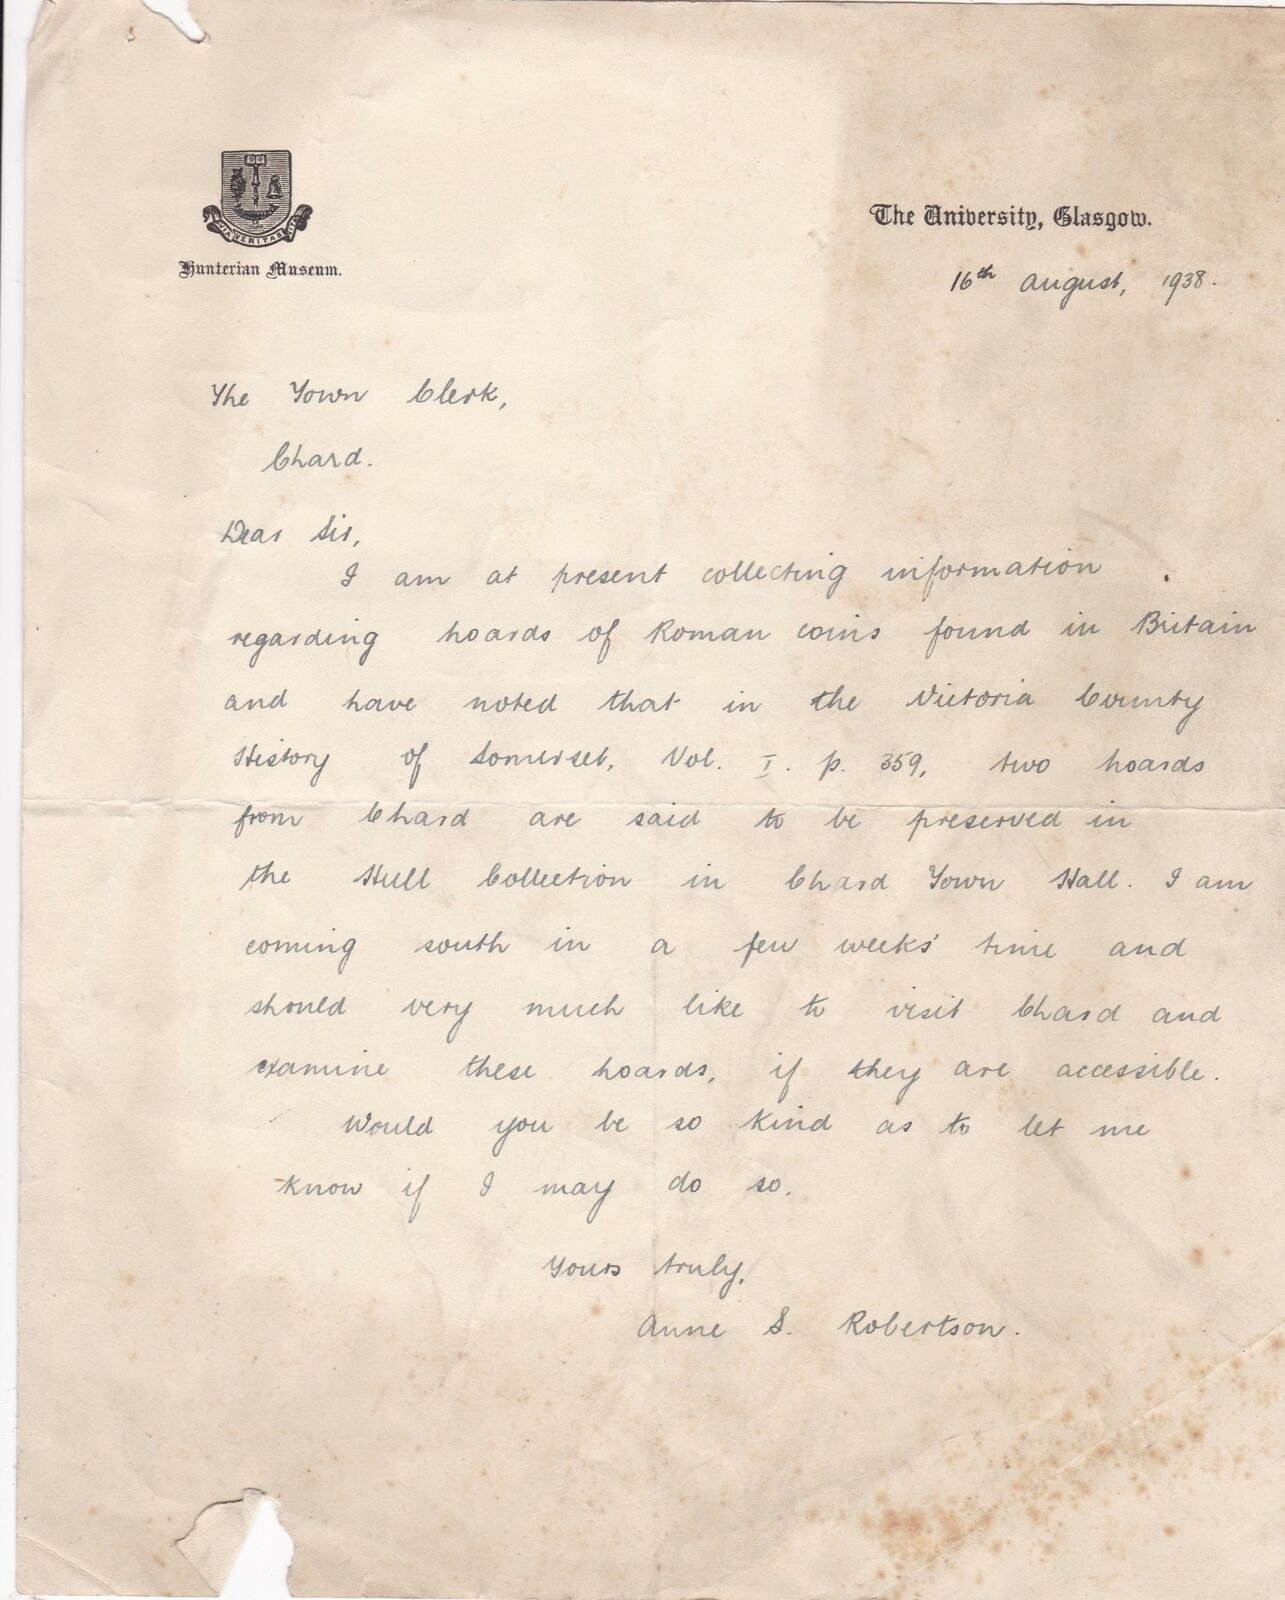 VIA VERITAS VITA
Hunterian Museum.
The University, Glasgow.
16th August, 1938.
The Town Clerk,
Chard.
Dear Sir,
I am at present collecting information
regarding hoards of Roman coins found in Britain
and have noted that in the Victoria County
History of Somerset, Vol. I. p. 359, two hoards
from Chard are said to be preserved in
the Hull Collection in Chard Town Hall. I am
coming south in a few weeks' time and
should very much like to visit Chard and
examine these hoards, if they are accessible.
Would you be so kind as to let me
know if I may do so.
Yours truly,
Anne S. Robertson.